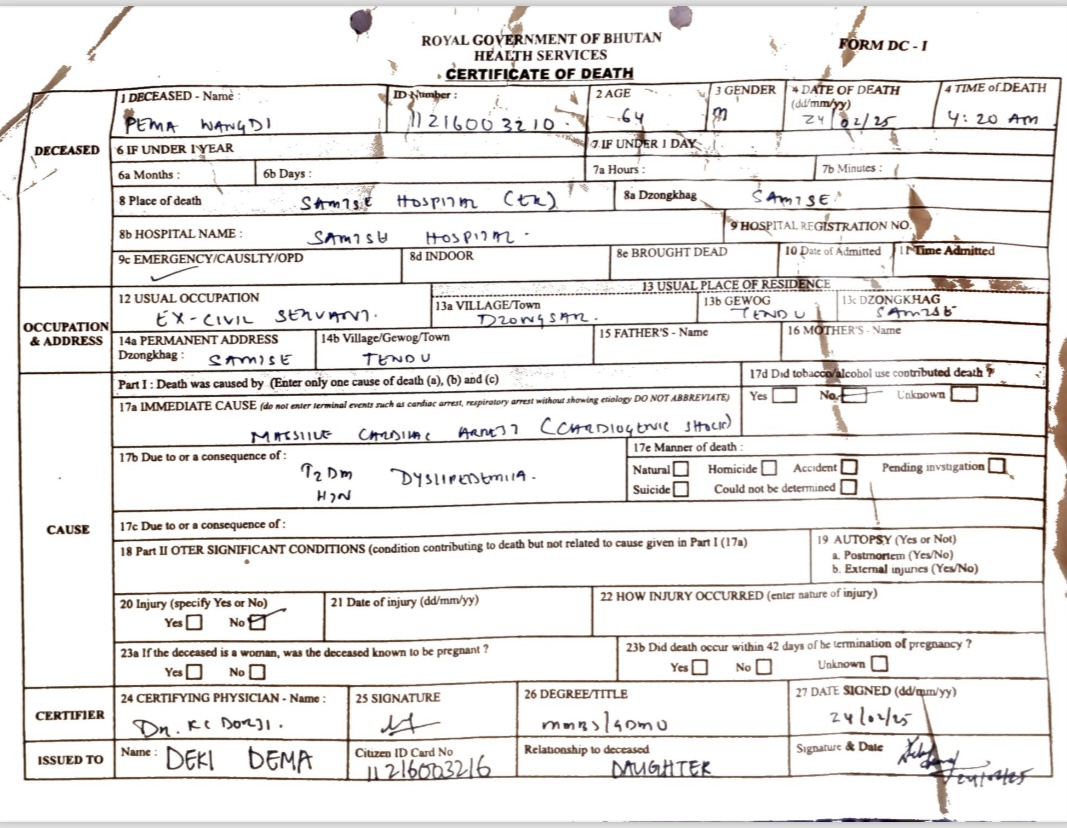 ROYAL GOVERNMENT OF BHUTAN
HEALTH SERVICES
CERTIFICATE OF DEATH
FORM DC - I
DECEASED
1 DECEASED - Name :
PEMA WANGDI
ID Number :
11216003210
2 AGE
64
3 GENDER
M
4 DATE OF DEATH
(dd/mm/yy)
24/02/25
4 TIME of.DEATH
4:20 AM
6 IF UNDER 1 YEAR
7 IF UNDER 1 DAY
6a Months :
6b Days :
7a Hours :
7b Minutes :
8 Place of death
SAMTSE HOSPITAL (ER)
8a Dzongkhag
SAMTSE
8b HOSPITAL NAME :
SAMTSE HOSPITAL.
9 HOSPITAL REGISTRATION NO.
9c EMERGENCY/CAUSLTY/OPD
8d INDOOR
8e BROUGHT DEAD
10 Date of Admitted
11 Time Admitted
OCCUPATION
& ADDRESS
12 USUAL OCCUPATION
EX-CIVIL SERVANT.
13 USUAL PLACE OF RESIDENCE
13a VILLAGE/Town
DZONGSAR.
13b GEWOG
TENDU
13c DZONGKHAG
SAMTSE
14a PERMANENT ADDRESS
Dzongkhag : SAMTSE
14b Village/Gewog/Town
TENDU
15 FATHER'S - Name
16 MOTHER'S - Name
CAUSE
Part I : Death was caused by (Enter only one cause of death (a), (b) and (c)
17d Did tobacco/alcohol use contributed death ?
Yes No Unknown
17a IMMEDIATE CAUSE (do not enter terminal events such as cardiac arrest, respiratory arrest without showing etiology DO NOT ABBREVIATE)
MASSIVE CARDIAC ARREST (CARDIOGENIC SHOCK)
17b Due to or a consequence of :
T2DM DYSLIPEDEMIA.
HTN
17e Manner of death :
Natural Homicide Accident Pending invstigation
Suicide Could not be determined
17c Due to or a consequence of :
18 Part II OTER SIGNIFICANT CONDITIONS (condition contributing to death but not related to cause given in Part I (17a)
19 AUTOPSY (Yes or Not)
a. Postmortem (Yes/No)
b. External injuries (Yes/No)
20 Injury (specify Yes or No)
Yes No
21 Date of injury (dd/mm/yy)
22 HOW INJURY OCCURRED (enter nature of injury)
23a If the deceased is a woman, was the deceased known to be pregnant ?
Yes No
23b Did death occur within 42 days of he termination of pregnancy ?
Yes No Unknown
CERTIFIER
24 CERTIFYING PHYSICIAN - Name :
Dr. KC DORJI.
25 SIGNATURE
26 DEGREE/TITLE
MMBS/GDMO
27 DATE SIGNED (dd/mm/yy)
24/02/25
ISSUED TO
Name : DEKI DEMA
Citizen ID Card No
11216003216
Relationship to deceased
DAUGHTER
Signature & Date
24/02/25